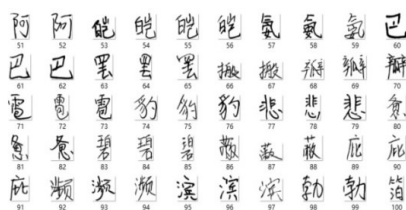 阿 阿 皑 皑 皑 皑 氨 氨 氨 巴
51 52 53 54 55 56 57 58 59 60
巴 巴 罢 罢 罢 搬 搬 瓣 瓣 瓣
61 62 63 64 65 66 67 68 69 70
雹 雹 雹 豹 豹 豹 悲 悲 悲 惫
71 72 73 74 75 76 77 78 79 80
惫 惫 碧 碧 碧 蔽 蔽 蔽 庇 庇
81 82 83 84 85 86 87 88 89 90
庇 濒 濒 濒 滨 滨 滨 勃 勃 箔
91 92 93 94 95 96 97 98 99 100